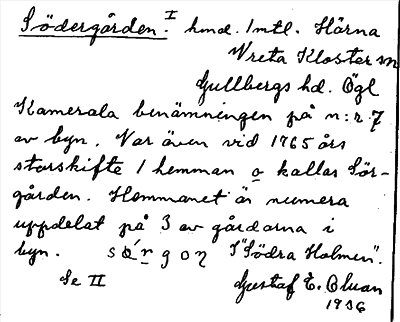 Södergården. I hmd. 1mtl. Härna
Vreta Kloster sn
Gullbergs hd. Ögl
Kamerala benämningen på n:r 7
av byn. Var även vid 1765 års
storskifte 1 hemman o kallas Sör-
gården. Hemmanet är numera
uppdelat på 3 av gårdarna i
byn. "Södra Holmen".
Se II Gustaf E. Bluan
1936